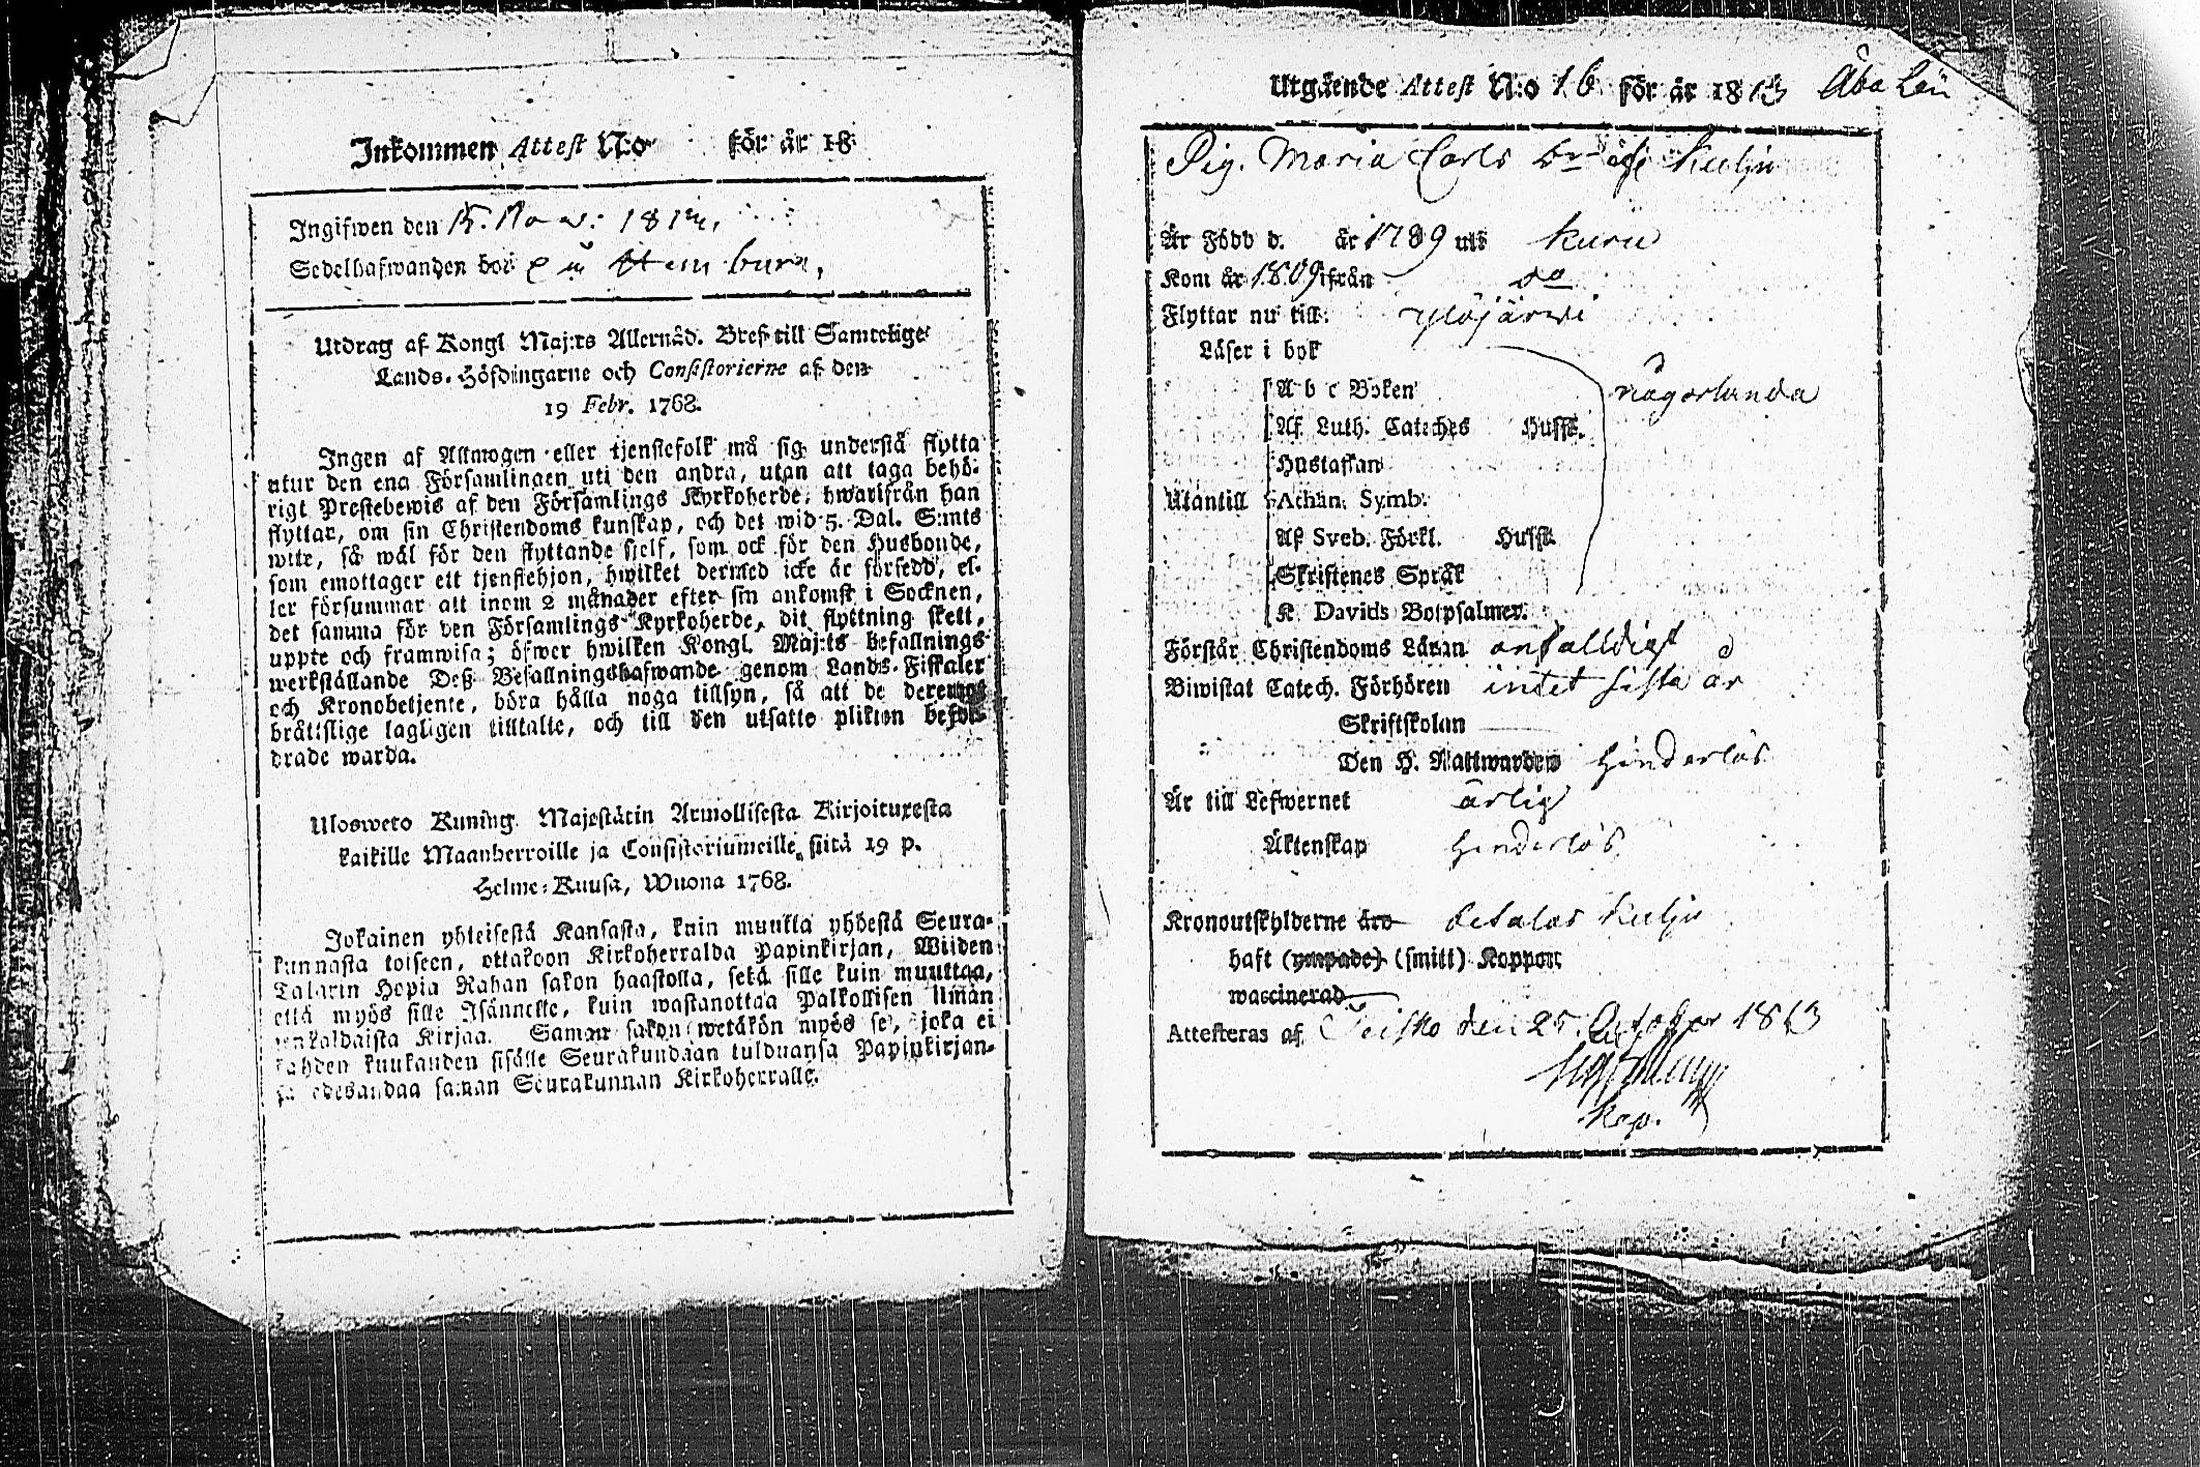 Inkommen Attest N:o för år 18
Ingifwen den 15. Nov: 181
Sedelhafwanden bor
Utdrag af Kongl Maj:ts Allernåd. Bref till Samtelige
Lands-Höfdingarne och Consistorierne af den
19 Febr. 1768.
Ingen af Allmogen eller tjenstefolk må sig understå flytta
utur den ena Församlingen uti den andra, utan att taga behö-
rigt Prestebewis af den Församlings Kyrkoherde, hwarifrån han
flyttar, om sin Christendoms kunskap, och det wid 5. Dal. S:mts
wite, så wäl för den flyttande sjelf, som ock för den Husbonde,
som emottager ett tjenstehjon, hwilket dermed icke är försedd, el-
ler försummar att inom 2 månader efter sin ankomst i Socknen,
det samma för den Församlings Kyrkoherde, dit flyttning skett,
uppte och framwisa; öfwer hwilken Kongl. Maj:ts befallnings
werkställande Deß Befallningshafwande genom Lands-Fiskaler
och Kronobetjente, böra hålla noga tillsyn, så att de deremot
bråttslige lagligen tilltalte, och till den utsatte plikten befor-
drade warda.
Ulosweto Kuning. Majestätin Armollisesta Kirjoituxesta
kaikille Maanherroille ja Consistoriumeille, siitä 19 p.
Helme-Kuusa, Wuona 1768.
Jokainen yhteisestä Kansasta, kuin muutta yhdestä Seura-
kunnasta toiseen, ottakoon Kirkoherralda Papinkirjan, Wiiden
Talarin Hopia Rahan sakon haastolla, sekä sille kuin muuttaa,
että myös sille Isännelle, kuin wastanottaa Palkollisen ilman
senkaldaista Kirjaa. Saman sakon wetäkön myös se, joka ei
kahden kuukauden sisälle Seurakundaan tulduansa Papinkirjan-
sa edesandaa saman Seurakunnan Kirkoherralle.
Utgående Attest N:o 16 för år 1813 Åbo Län
Pig. Maria Carls Kulju
Är Född d. år 1789 uti Kuru
Kom år 1809 ifrån do
Flyttar nu till Ylöjärwi
Läser i bok
A b c Boken någorlunda
Af Luth. Cateches Husst.
Hustaflan
Utantill Athan. Symb.
Af Sveb. Förkl. Husst.
Skriftenes Språk
K. Davids Botpsalmer.
Förstår Christendoms Läran enfalldigt
Biwistat Catech. Förhören intet sista år
Skriftskolan
Den H. Nattwarden hinderlös
Är till Lefwernet ärlig
Äktenskap hinderlös
Kronoutskylderne äro betalas Kulju
haft (ympade) (smitt) Koppor
waccinerad
Attesteras af Teisko den 25. October 1813
Kap.